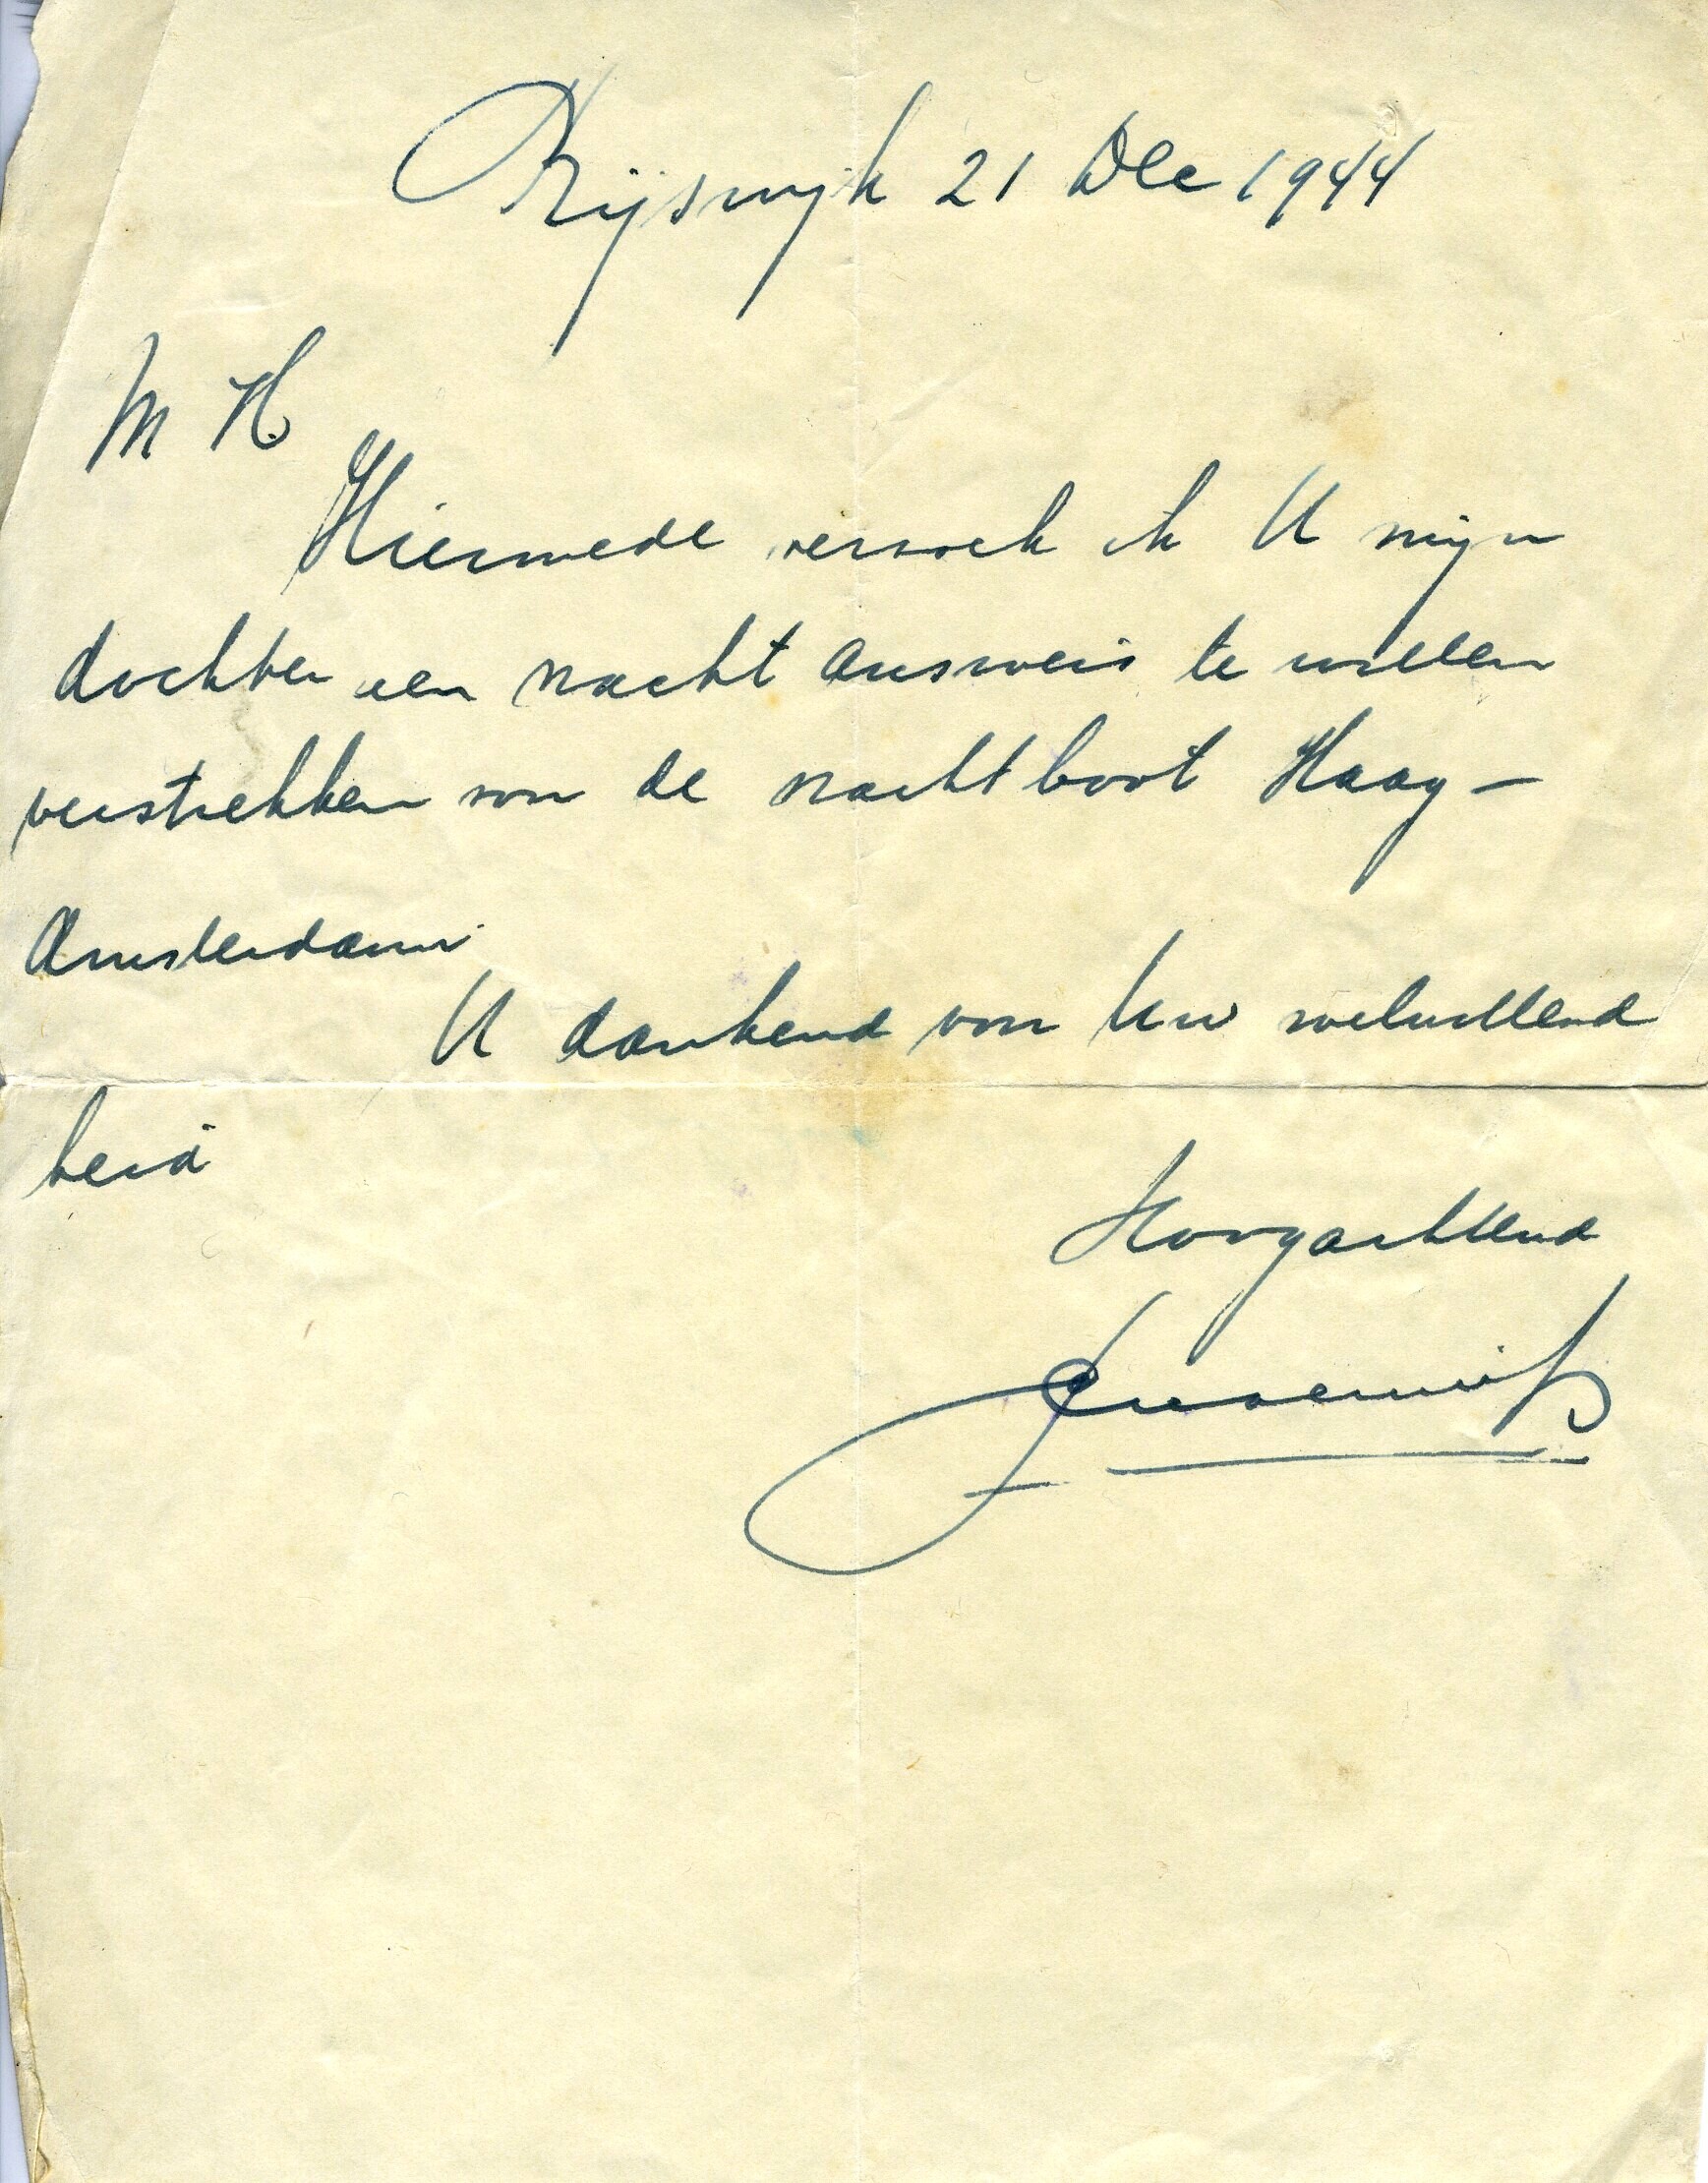 Rijswijk 21 Dec 1944
M H
Hiermede versoek ik U mijn
dochter een nacht ausweis te willen
verstrekken voor de nachtboot Haag -
Amsterdam.
U dankend voor Uw welwillend
heid
Hoogachtend